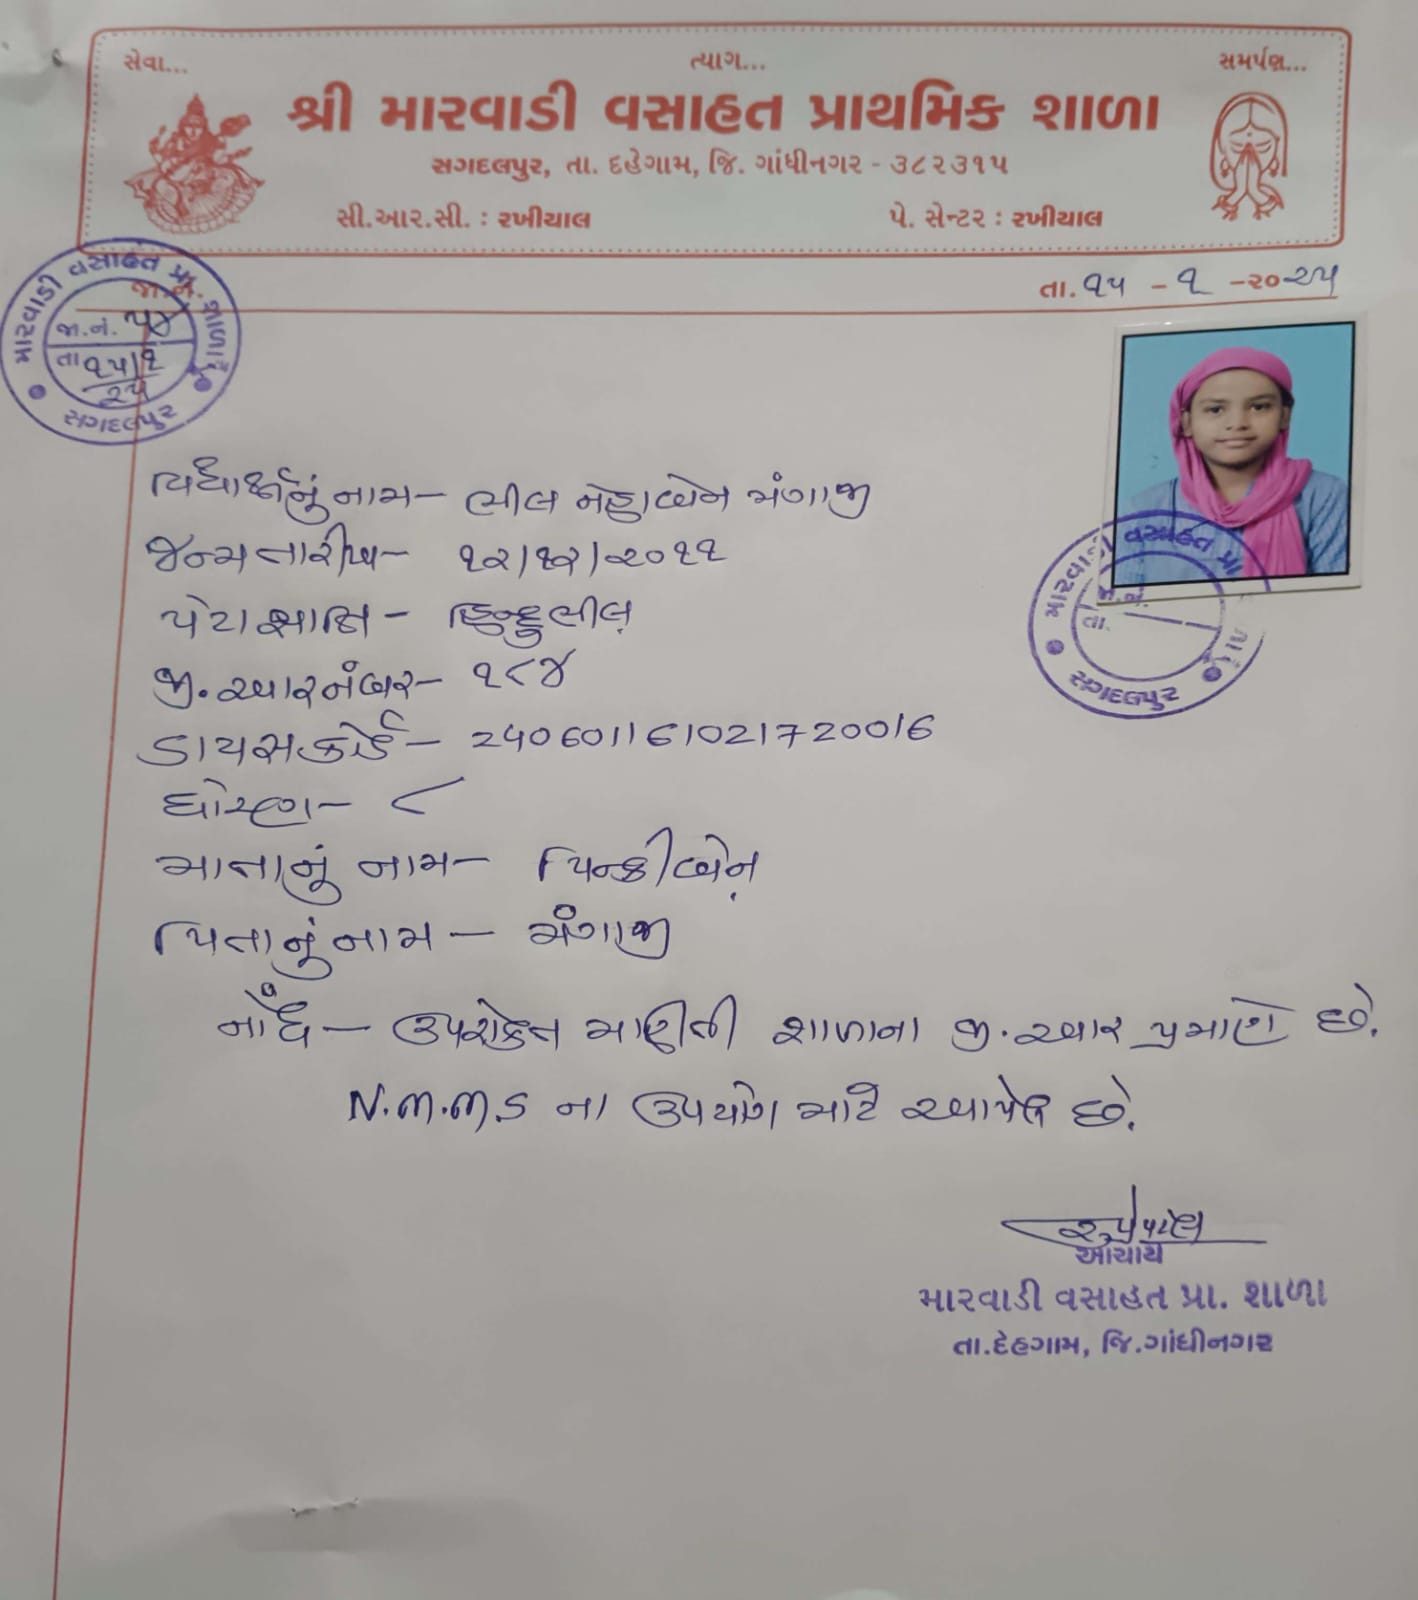 સેવા... ત્યાગ... સમર્પણ...
શ્રી મારવાડી વસાહત પ્રાથમિક શાળા
સગદલપુર, તા. દહેગામ, જિ. ગાંધીનગર - ૩૮૨૩૧૫
સી.આર.સી. : રખીયાલ પે. સેન્ટર : રખીયાલ
તા. ૧૫ - ૧ - ૨૦૨૫
મારવાડી વસાહત પ્રા. શાળા
જા.નં.
જા.નં. ૫૪
તા ૧૫/૧
૨૫
સગદલપુર
વિદ્યાર્થીનું નામ - ભીલ નેહાબેન મંગાજી
જન્મ તારીખ - ૧૨/૧૨/૨૦૧૧
પેટા જ્ઞાતિ - હિન્દુ ભીલ
જી.આર નંબર - ૧૮૪
ડાયસ કોર્ડ - 240601161021720016
ધોરણ - ૮
માતાનું નામ - પિન્કીબેન
પિતાનું નામ - મંગાજી
નોંધ - ઉપરોક્ત માહીતી શાળાના જી.આર પ્રમાણે છે.
N.M.M.S ના ઉપયોગ માટે આપેલ છે.
મારવાડી વસાહત પ્રા
જા.નં.
તા.
સગદલપુર
આચાર્ય
મારવાડી વસાહત પ્રા. શાળા
તા.દેહગામ, જિ.ગાંધીનગર